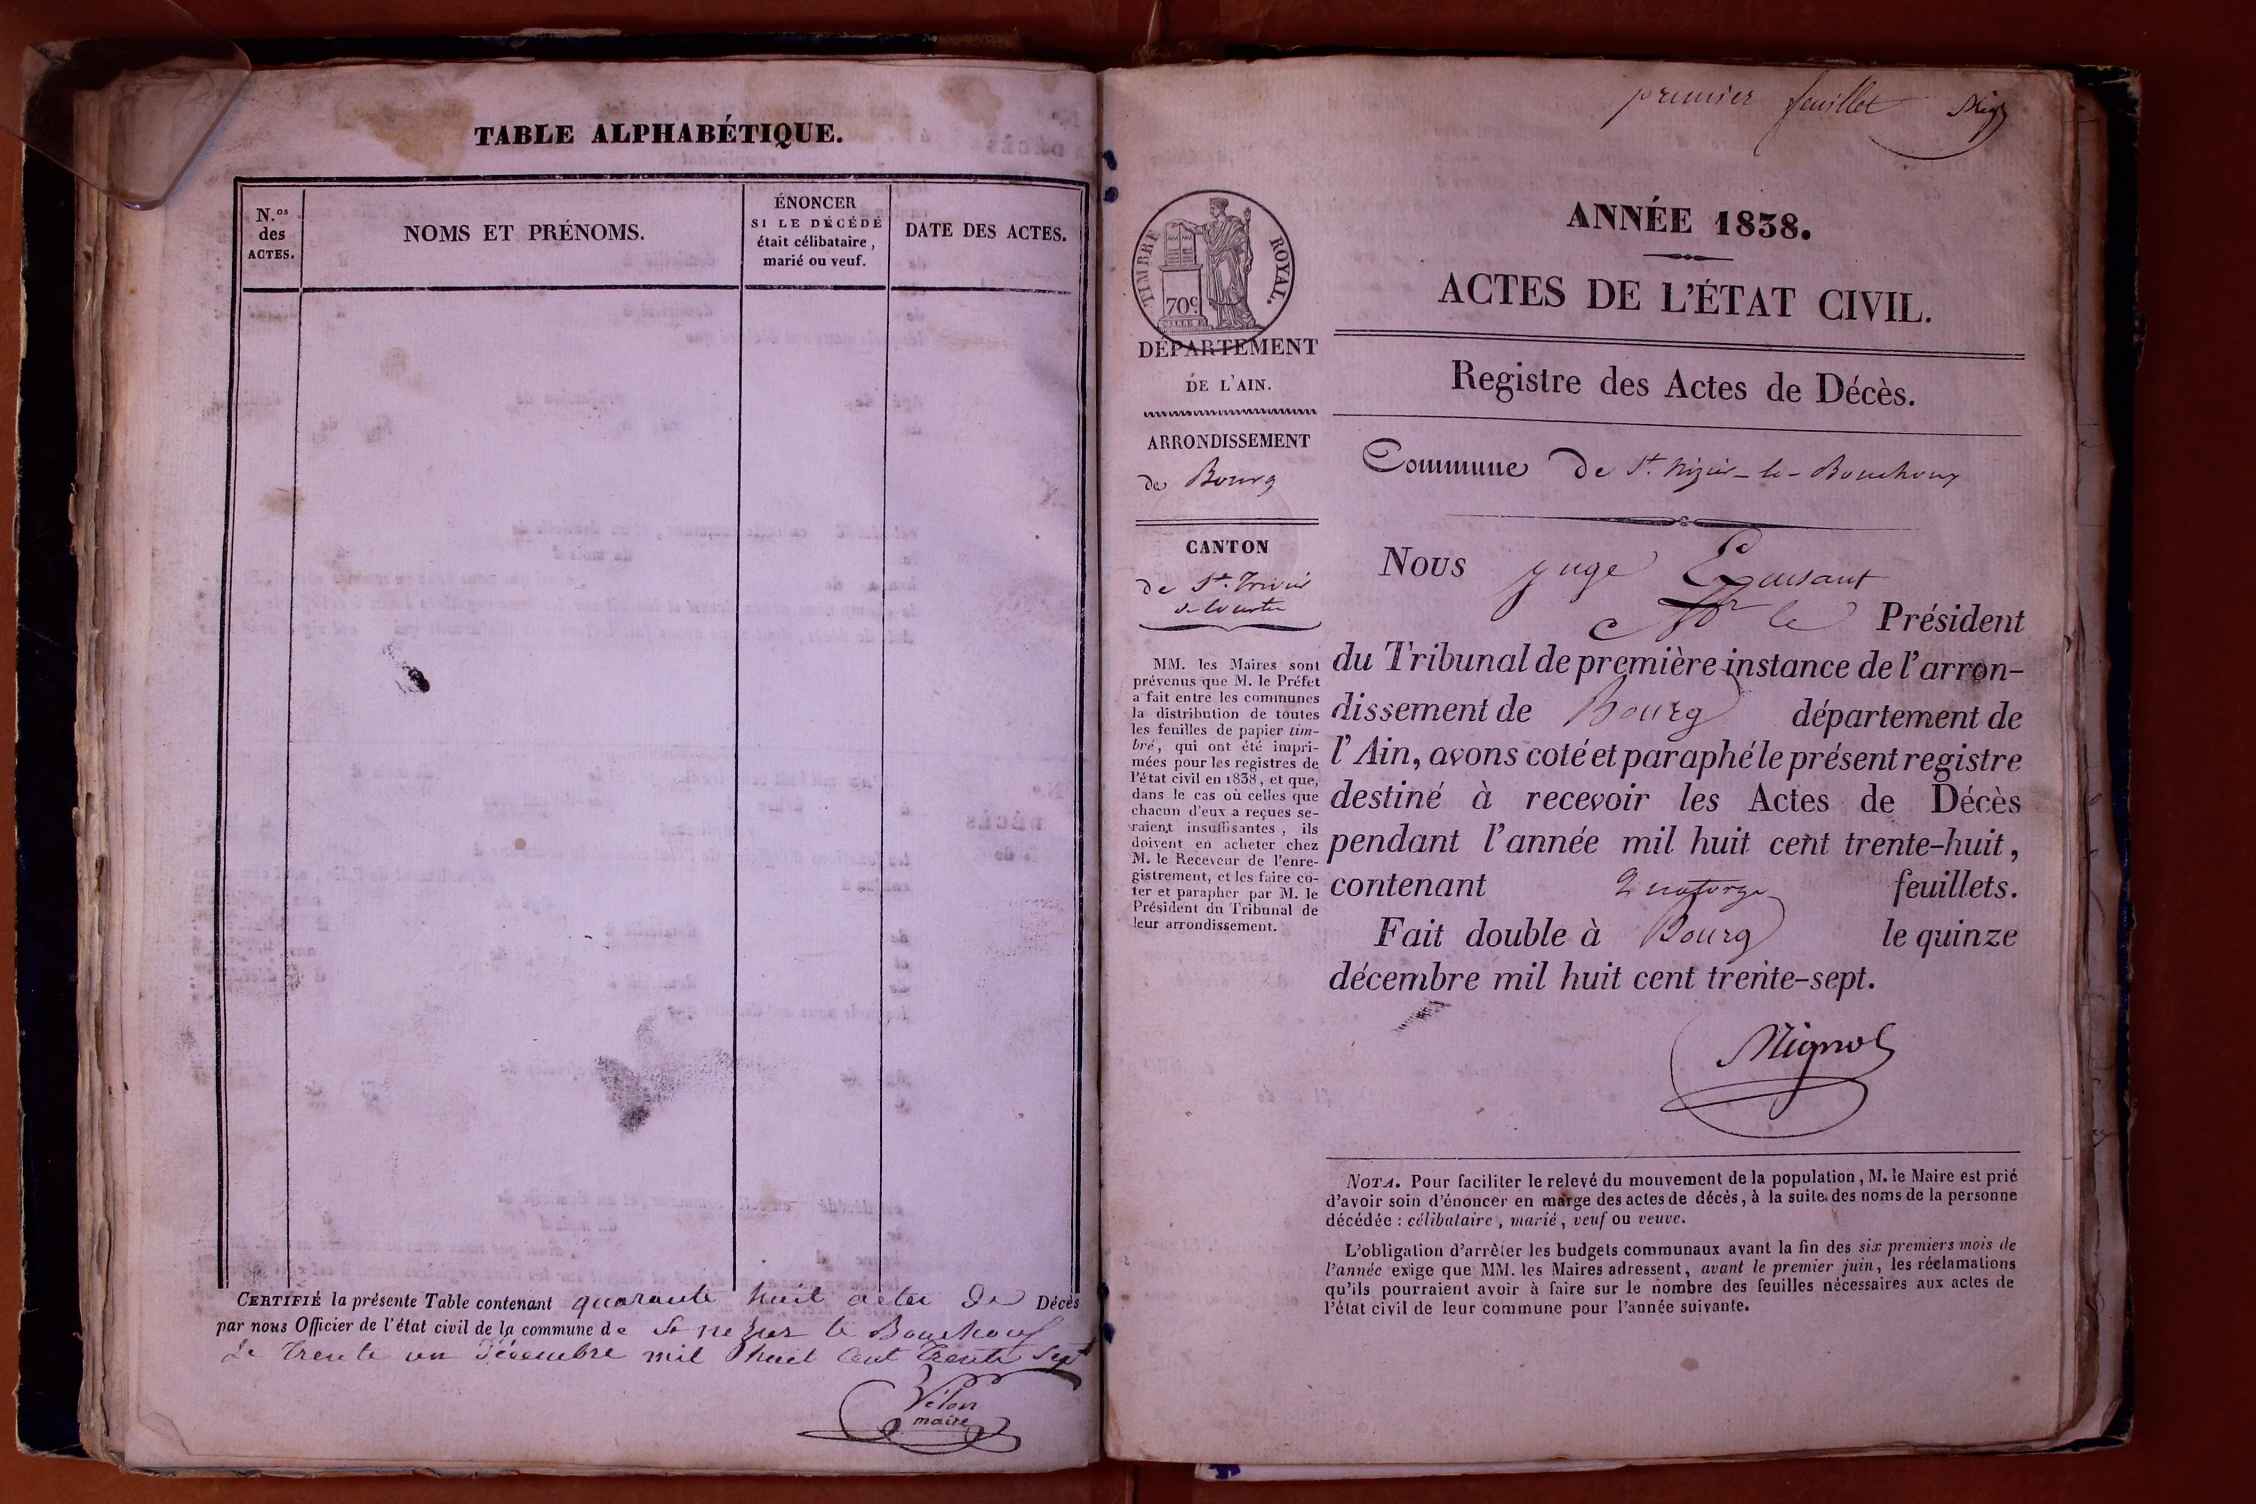 TABLE ALPHABÉTIQUE.
N.os
des
ACTES.
NOMS ET PRÉNOMS.
ÉNONCER
SI LE DÉCÉDÉ
était célibataire,
marié ou veuf.
DATE DES ACTES.
CERTIFIÉ la présente Table contenant quarante huit actes De Décès
par nous Officier de l'état civil de la commune de St nezier le Bouchoux
Le Trente un Décembre mil huit Cent Trente Sept
maire
premier feuillet Mig
TIMBRE ROYAL.
70c
DÉPARTEMENT
DE L'AIN.
ARRONDISSEMENT
de Bourg
CANTON
de St. Trivier
de Courtes
MM. les Maires sont
prévenus que M. le Préfet
a fait entre les communes
la distribution de toutes
les feuilles de papier tim-
bré, qui ont été impri-
mées pour les registres de
l'état civil en 1838, et que,
dans le cas où celles que
chacun d'eux a reçues se-
raient insuffisantes, ils
doivent en acheter chez
M. le Receveur de l'enre-
gistrement, et les faire co-
ter et parapher par M. le
Président du Tribunal de
leur arrondissement.
ANNÉE 1838.
ACTES DE L'ÉTAT CIVIL.
Registre des Actes de Décès.
Commune de St. Nizier-le-Bouchoux
Nous juge
le Président
du Tribunal de première instance de l'arron-
dissement de Bourg département de
l'Ain, avons coté et paraphé le présent registre
destiné à recevoir les Actes de Décès
pendant l'année mil huit cent trente-huit,
contenant Quatorze feuillets.
Fait double à Bourg le quinze
décembre mil huit cent trente-sept.
Mignot
NOTA. Pour faciliter le relevé du mouvement de la population, M. le Maire est prié
d'avoir soin d'énoncer en marge des actes de décès, à la suite des noms de la personne
décédée : célibataire, marié, veuf ou veuve.
L'obligation d'arrêter les budgets communaux avant la fin des six premiers mois de
l'année exige que MM. les Maires adressent, avant le premier juin, les réclamations
qu'ils pourraient avoir à faire sur le nombre des feuilles nécessaires aux actes de
l'état civil de leur commune pour l'année suivante.